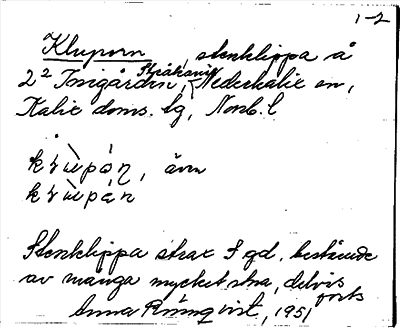 1-2
Kluporn, stenklippa å
2² Torsgården, Stråkanäs, Nederkalix sn,
Kalix doms. lg, Norrb. l
även
Stenklippa strax S gd. bestående
av många mycket stora, delvis
forts
Anna Rönnqvist, 1951